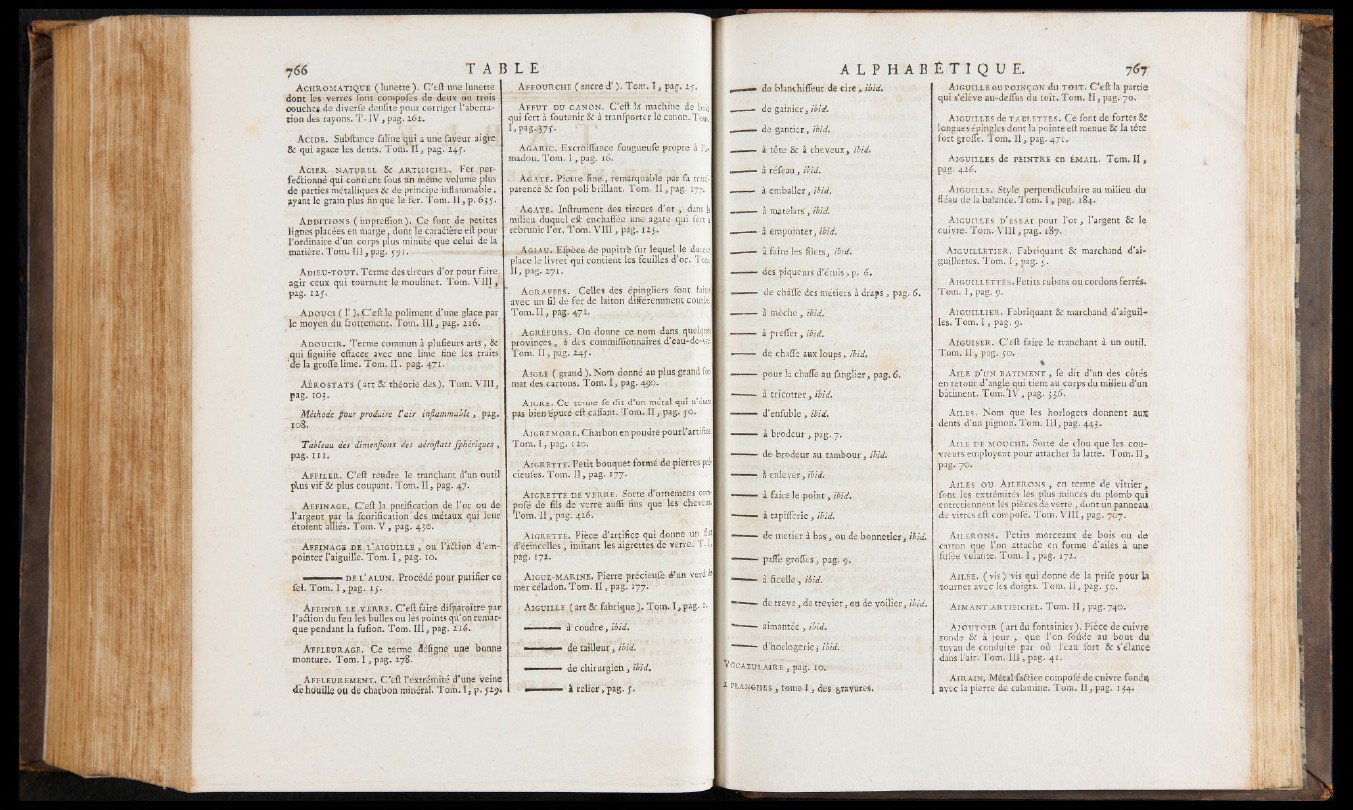 766 TABLE
ACHROMATIQUE (lunette). C'eſt une lunette
dont les verres ſont compoſés de deux ou trois
couches de diverſe denſité pour corriger l'aberra-
tion des rayons. T. IV, pag. 262.
ACIDE. Subſtance ſaline qui a une ſaveur aigre
& qui agace les dents. Tom. II, pag. 245.
ACIER NATUREL & ARTIFICIEL. Fer per-
fectionné qui contient ſous un même volume plus
de parties métalliques & de principe inflammable,
ayant le grain plus fin que le fer. Tom. II, p. 635.
ADDITIONS (impreſſion). Ce ſont de petites
lignes placées en marge, dont le caractère eſt pour
l'ordinaire d'un corps plus minuté que celui de la
matière. Tom. III, pag. 591.
ADIEU-TOUT. Terme des tireurs d'or pour faire
agir ceux qui tournent le moulinet. Tom. VIII,
pag. 125.
ADOUCI (l'). C'eſt le poliment d'une glace par
le moyen du frottement. Tom. III, pag. 216.
ADOUCIR. Terme commun à pluſieurs arts, &
qui ſignifie effacer avec une lime fine les traits
de la groſſe lime. Tom. II. pag. 471.
AÉROSTATS (art & théorie des). Tom. VIII,
pag. 103.
Méthode pour produire l'air inflammable, pag.
108.
Tableau des dimenſions des aéroſtats ſphériques,
pag. 111.
AFFILER. C'eſt rendre le tranchant d'un outil
plus vif & plus coupant. Tom. II, pag. 47.
AFFINAGE. C'eſt la purification de l'or ou de
l'argent par la ſcorification des métaux qui leur
étoient alliés. Tom. V, pag. 430.
AFFINAGE DE L'AIGUILLE, ou l'action d'em-
pointer l'aiguille. Tom. I, pag. 10.
—— DE L'ALUN. Procédé pour purifier ce
ſel. Tom. I, pag. 15.
AFFINER LE VERRE. C'eſt faire diſparoître par
l'action du feu les bulles ou les points qu'on remar-
que pendant la fuſion. Tom. III, pag. 216.
AFFLEURAGE. Ce terme déſigne une bonne
monture. Tom. I, pag. 278.
AFFLEUREMENT. C'eſt l'extrémité d'une veine
de houille ou de charbon minéral. Tom. I, p. 529.
AFFOURCHE (ancre d'). Tom. I, pag. 25.
AFFUT DU CANON. C'eſt la machine de
qui ſert à ſoutenir & à tranſporter le canon. Tom.
I, pag. 375.
AGARIC. Excroiſſance fongueuſe propre à
madou. Tom. I, pag. 16.
AGATE. Pierre fine, remarquable par ſa
parence & ſon poli brillant. Tom. II, pag. 177.
AGATE. Inſtrument des tireurs d'or, dans le
milieu duquel eſt enchaſſée une agate qui ſert à
rebrunir l'or. Tom. VIII, pag. 125.
AGIAU. Eſpèce de pupitre ſur lequel le
place le livret qui contient les feuilles d'or. Tom.
II, pag. 271.
AGRAFFES. Celles des épingliers ſont faites
avec un fil de fer de laiton différemment
Tom. II, pag. 471.
AGRÉEURS. On donne ce nom dans quelques
provinces, à des commiſſionnaires d'eau-de-vie.
Tom. II, pag. 245.
AIGLE (grand). Nom donné au plus grand for-
mat des cartons. Tom. I, pag. 490.
AIGRE. Ce terme ſe dit d'un métal qui
pas bien épuré eſt caſſant. Tom. II, pag. 50.
AIGREMORE. Charbon en poudre pour l'artifice.
Tom. I, pag. 120.
AIGRETTE. Petit bouquet formé de pierres pré-
cieuſes. Tom. II, pag. 177.
AIGRETTE DE VERRE. Sorte d'ornemens com-
poſé de fils de verre auſſi fins que les cheveux.
Tom. II, pag. 426.
AIGRETTE. Pièce d'artifice qui donne un
d'étincelles, imitant les aigrettes de verre. T. I,
pag. 172.
AIGUE-MARINE. Pierre précieuſe d'un verd de
mer céladon. Tom. II, pag. 177.
AIGUILLE (art & fabrique). Tom. I, pag. 1.
—— à coudre, ibid.
—— de tailleur, ibid.
—— de chirurgien, ibid.
—— à relier, pag. 5.
ALPHABÉTIQUE. 767
—— de blanchiſſeur de cire, ibid.
—— de gainier, ibid.
—— de gantier, ibid.
—— à tête & à cheveux, ibid.
—— à réſeau, ibid.
—— à emballer, ibid.
—— à matelats, ibid.
—— à empointer, ibid.
—— à faire les filets, ibid.
—— des piqueurs d'étuis, p. 6.
—— de chaſſe des métiers à draps, pag. 6.
—— à mèche, ibid.
—— à preſſer, ibid.
—— de chaſſe aux loups, ibid.
—— pour la chaſſe au ſanglier, pag. 6.
—— à tricotter, ibid.
—— d'enſuble, ibid.
—— à brodeur, pag. 7.
—— de brodeur au tambour, ibid.
—— à enlever, ibid.
—— à faire le point, ibid.
—— à tapiſſerie, ibid.
—— de metier à bas, ou de bonnetier, ibid.
—— paſſe groſſes, pag. 9.
—— à ficelle, ibid.
—— de treve, de trevier, ou de voilier, ibid.
—— aimantée, ibid.
—— d'horlogerie, ibid.
VOCABULAIRE, pag. 10.
2 PLANCHES, tome I, des gravures.
AIGUILLE OU POINÇON DU TOIT. C'eſt la partie
qui s'élève au-deſſus du toit. Tom. II, pag. 70.
AIGUILLES DE TABLETTES. Ce ſont de fortes &
longues épingles dont la pointe eſt menue & la tête
fort groſſe. Tom. II, pag. 471.
AIGUILLES DE PEINTRE EN ÉMAIL. Tom. II,
pag. 426.
AIGUILLE. Style perpendiculaire au milieu du
fléau de la balance. Tom. I, pag. 184.
AIGUILLES D'ESSAI pour l'or, l'argent & le
cuivre. Tom. VIII, pag. 187.
AIGUILLETIER. Fabriquant & marchand d'ai-
guillettes. Tom. I, pag. 5.
AIGUILLETTES. Petits rubans ou cordons ferrés.
Tom. I, pag. 9.
AIGUILLIER. Fabriquant & marchand d'aiguil-
les. Tom. I, pag. 9.
AIGUISER. C'eſt faire le tranchant à un outil.
Tom. II, pag. 50.
AILE D'UN BATIMENT, ſe dit d'un des côtés
en retour d'angle qui tient au corps du milieu d'un
bâtiment. Tom. IV, pag. 336.
AILES. Nom que les horlogers donnent aux
dents d'un pignon. Tom. III, pag. 443.
AILE DE MOUCHE. Sorte de clou que les cou-
vreurs employent pour attacher la latte. Tom. II,
pag. 70.
AILES OU AILERONS, en terme de vitrier,
ſont les extrémités les plus minces du plomb qui
entretiennent les pièces de verre, dont un panneau
de vitres eſt compoſé. Tom. VIII, pag. 707.
AILERONS. Petits morceaux de bois ou de
carton que l'on attache en forme d'ailes à une
fuſée volante. Tom. I, pag. 172.
AILÉE. (vis) vis qui donne de la priſe pour la
tourner avec les doigts. Tom. II, pag. 50.
AIMANT ARTIFICIEL. Tom. II, pag. 740.
AJOUTOIR (art du fontainier). Pièce de cuivre
ronde & à jour, que l'on ſoude au bout du
tuyau de conduite par où l'eau ſort & s'élance
dans l'air. Tom. III, pag. 41.
AIRAIN. Métal factice compoſé de cuivre fondu
avec la pierre de calamine. Tom. II, pag. 134.